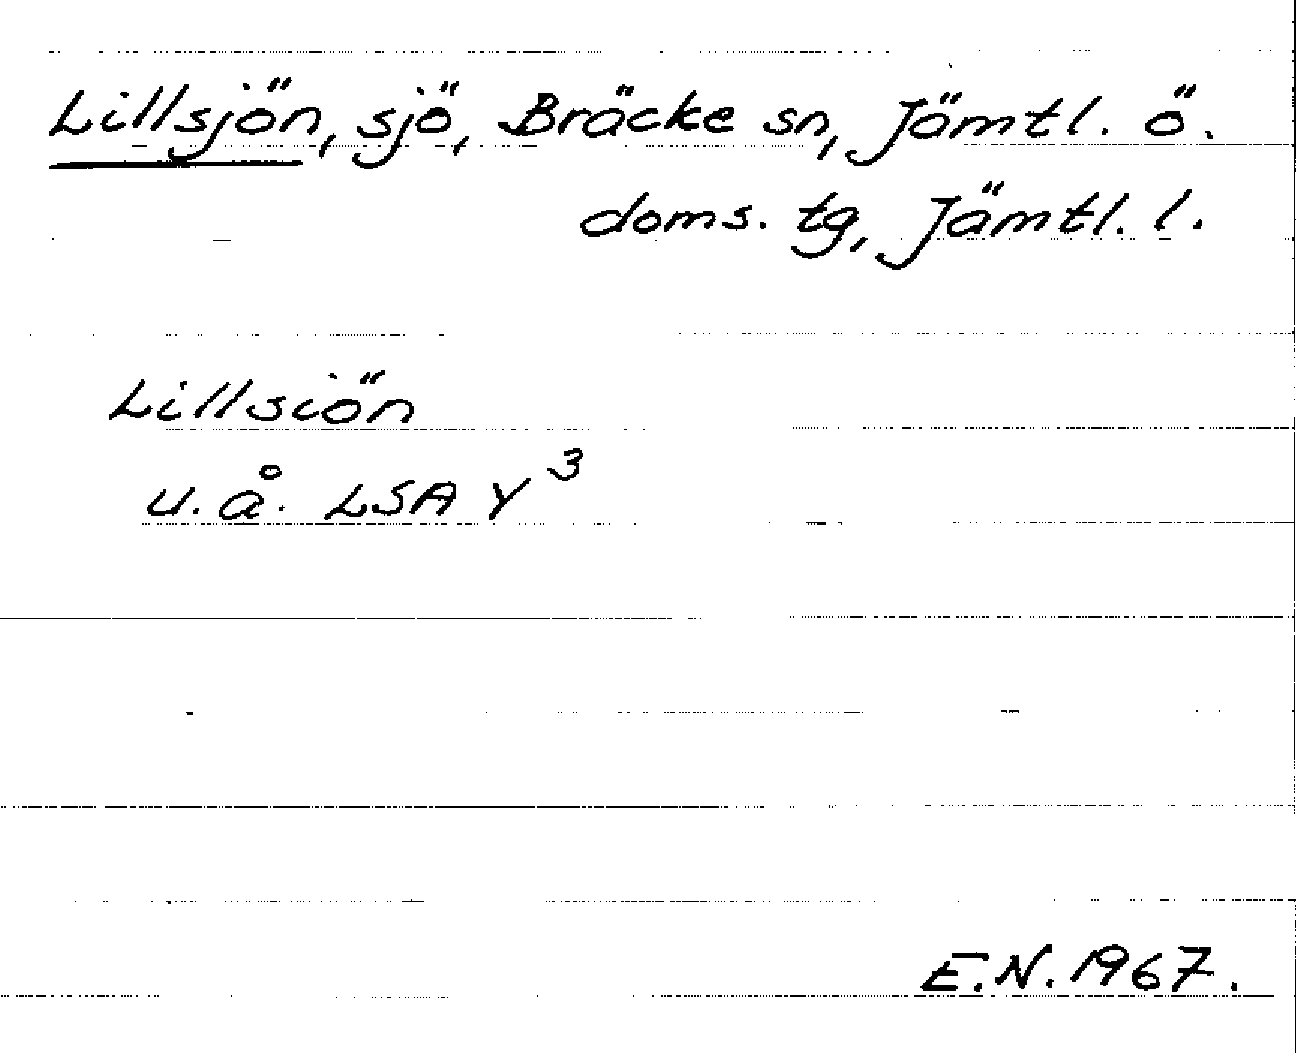 Lillsjön, sjö, Bräcke sn, Jämtl. ö.
doms. tg, Jämtl. l.
Lillsiön
u. å. LSA Y³
E.N. 1967.